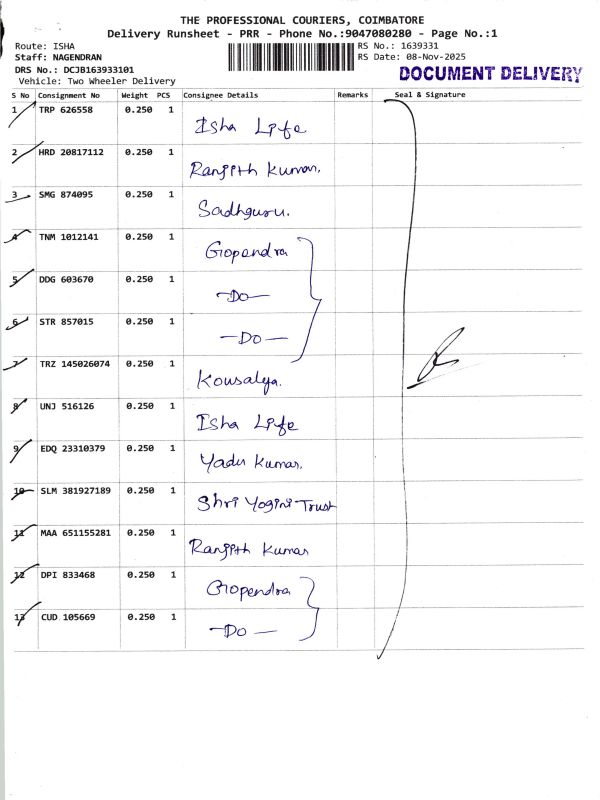 THE PROFESSIONAL COURIERS, COIMBATORE
Delivery Runsheet - PRR - Phone No.:9047080280 - Page No.:1
Route: ISHA
Staff: NAGENDRAN
DRS No.: DCJB163933101
Vehicle: Two Wheeler Delivery
RS No.: 1639331
RS Date: 08-Nov-2025
DOCUMENT DELIVERY
S No Consignment No Weight PCS Consignee Details Remarks Seal & Signature
1 TRP 626558 0.250 1 Isha Life
2 HRD 20817112 0.250 1 Ranjith Kumar.
3 SMG 874095 0.250 1 Sadhguru.
4 TNM 1012141 0.250 1 Gopendra
5 DDG 603670 0.250 1 —Do—
6 STR 857015 0.250 1 —Do—
7 TRZ 145026074 0.250 1 Kousalya.
8 UNJ 516126 0.250 1 Isha Life
9 EDQ 23310379 0.250 1 Yadu Kumar.
10 SLM 381927189 0.250 1 Shri Yogini Trust
11 MAA 651155281 0.250 1 Ranjith Kumar
12 DPI 833468 0.250 1 Gopendra
13 CUD 105669 0.250 1 —Do—